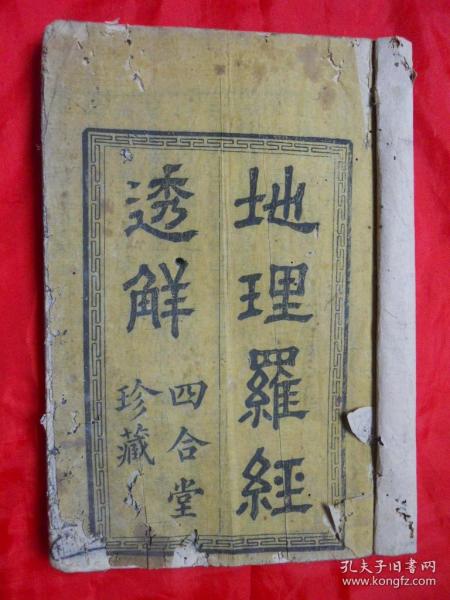 地理羅經
透解
四合堂
珍藏
孔夫子旧书网
www.kongfz.com